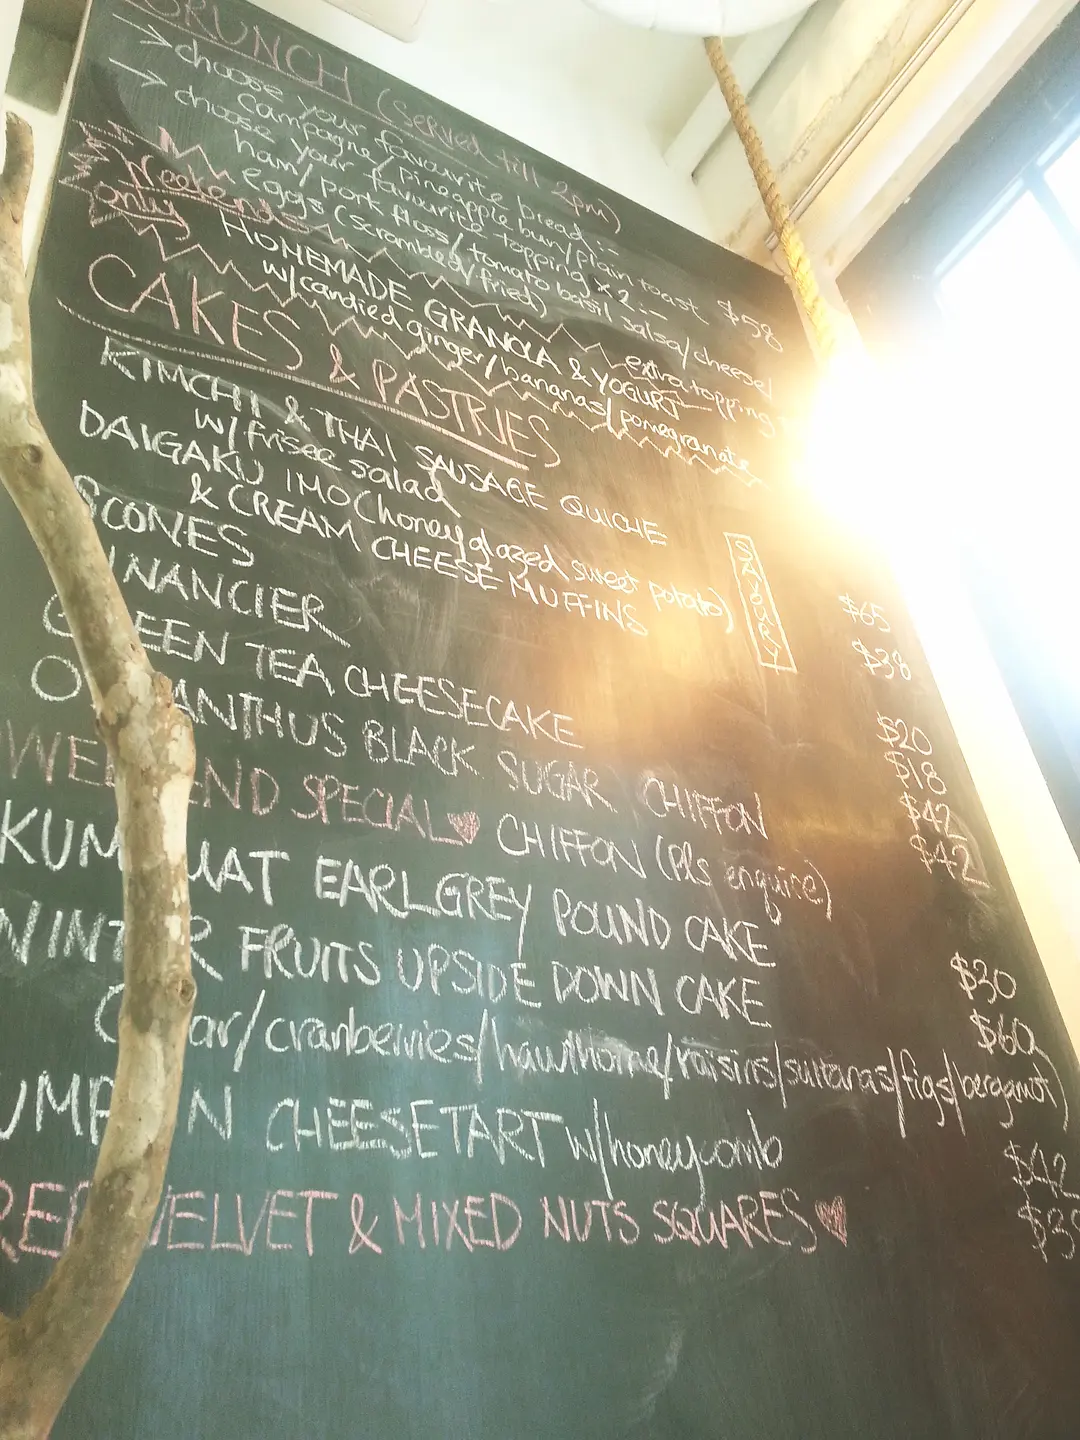 BRUNCH (served till 2pm)
→ choose your favourite bread :-
campagne/pineapple bun/plain toast $58
→ choose your favourite topping x2 :-
ham/pork floss/tomato basil salsa/cheese/
eggs (scrambled/fried) extra topping
Weekends only
HOMEMADE GRANOLA & YOGURT
w/candied ginger/bananas/pomegranate
CAKES & PASTRIES
KIMCHI & THAI SAUSAGE QUICHE $65
w/frisee salad
DAIGAKU IMO (honey glazed sweet potato) $38
& CREAM CHEESE MUFFINS
SAVOURY
SCONES $20
INANCIER $18
G EEN TEA CHEESECAKE $42
O ANTHUS BLACK SUGAR CHIFFON $42
WEE END SPECIAL♥ CHIFFON (Pls enquire)
KUM UAT EARL GREY POUND CAKE $30
WINT R FRUITS UPSIDE DOWN CAKE $60
ar/cranberries/hawthorne/raisins/sultanas/figs/bergamot)
UMP N CHEESETART w/honeycomb $42
RED VELVET & MIXED NUTS SQUARES♥